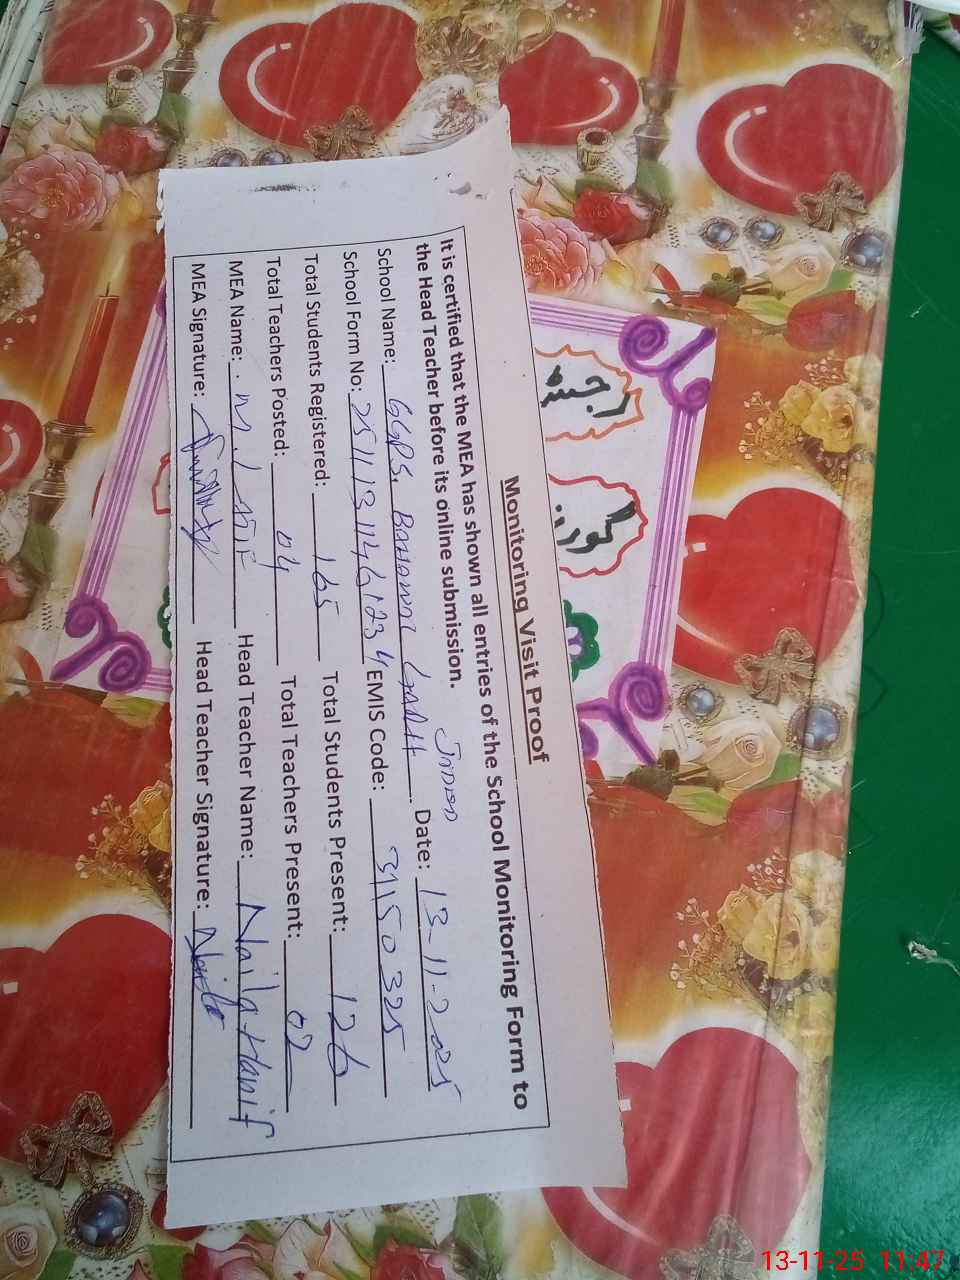 Monitoring Visit Proof
It is certified that the MEA has shown all entries of the School Monitoring Form to
the Head Teacher before its online submission.
School Name: GGPS, Bahawal Garh Jaded Date: 13-11-2025
School Form No: 25111311461234 EMIS Code: 31150325
Total Students Registered: 165 Total Students Present: 126
Total Teachers Posted: 04 Total Teachers Present: 02
MEA Name: Head Teacher Name: Naila Hanif
MEA Signature: Head Teacher Signature: Naila
13-11-25 11:47